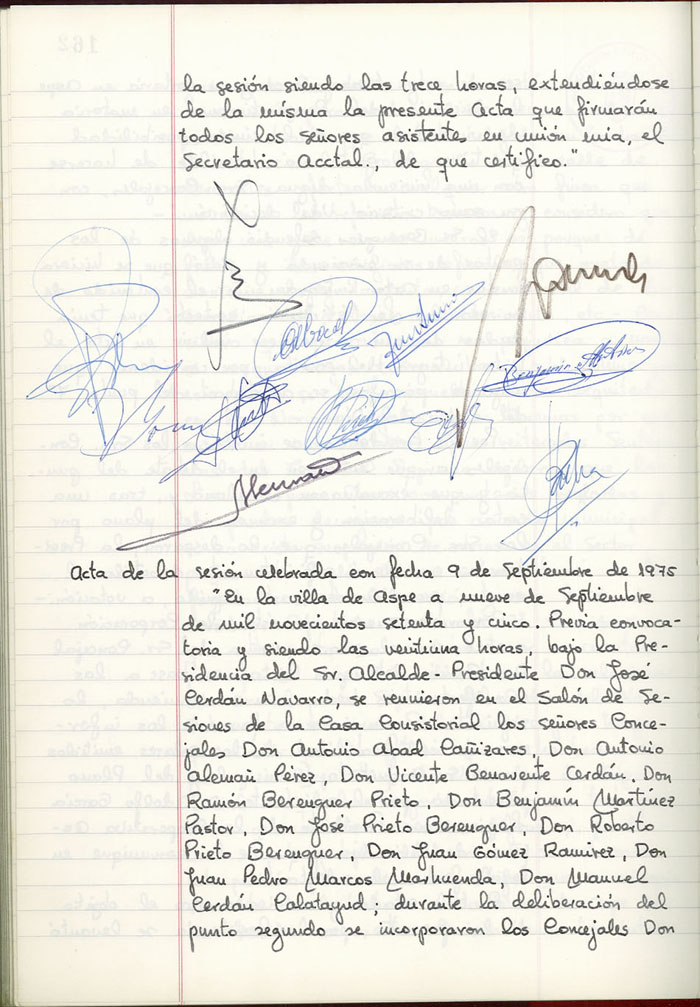 la sesión siendo las trece horas, extendiéndose
de la misma la presente Acta que firmarán
todos los señores asistentes, en unión mia, el
Secretario Acctal., de que certifico."
Benjamin Martinez
Acta de la sesión celebrada con fecha 9 de Septiembre de 1975
"En la villa de Aspe a nueve de Septiembre
de mil novecientos setenta y cinco. Previa convoca-
toria y siendo las veintiuna horas, bajo la Pre-
sidencia del Sr. Alcalde-Presidente Don José
Cerdán Navarro, se reunieron en el Salón de Se-
siones de la Casa Consistorial los señores Conce-
jales Don Antonio Abad Cañizares, Don Antonio
Alemañ Pérez, Don Vicente Benavente Cerdán, Don
Ramón Berenguer Prieto, Don Benjamín Martínez
Pastor, Don José Prieto Berenguer, Don Roberto
Prieto Berenguer, Don Juan Gómez Ramirez, Don
Juan Pedro Marcos Marhuenda, Don Manuel
Cerdán Calatayud; durante la deliberación del
punto segundo se incorporaron los Concejales Don